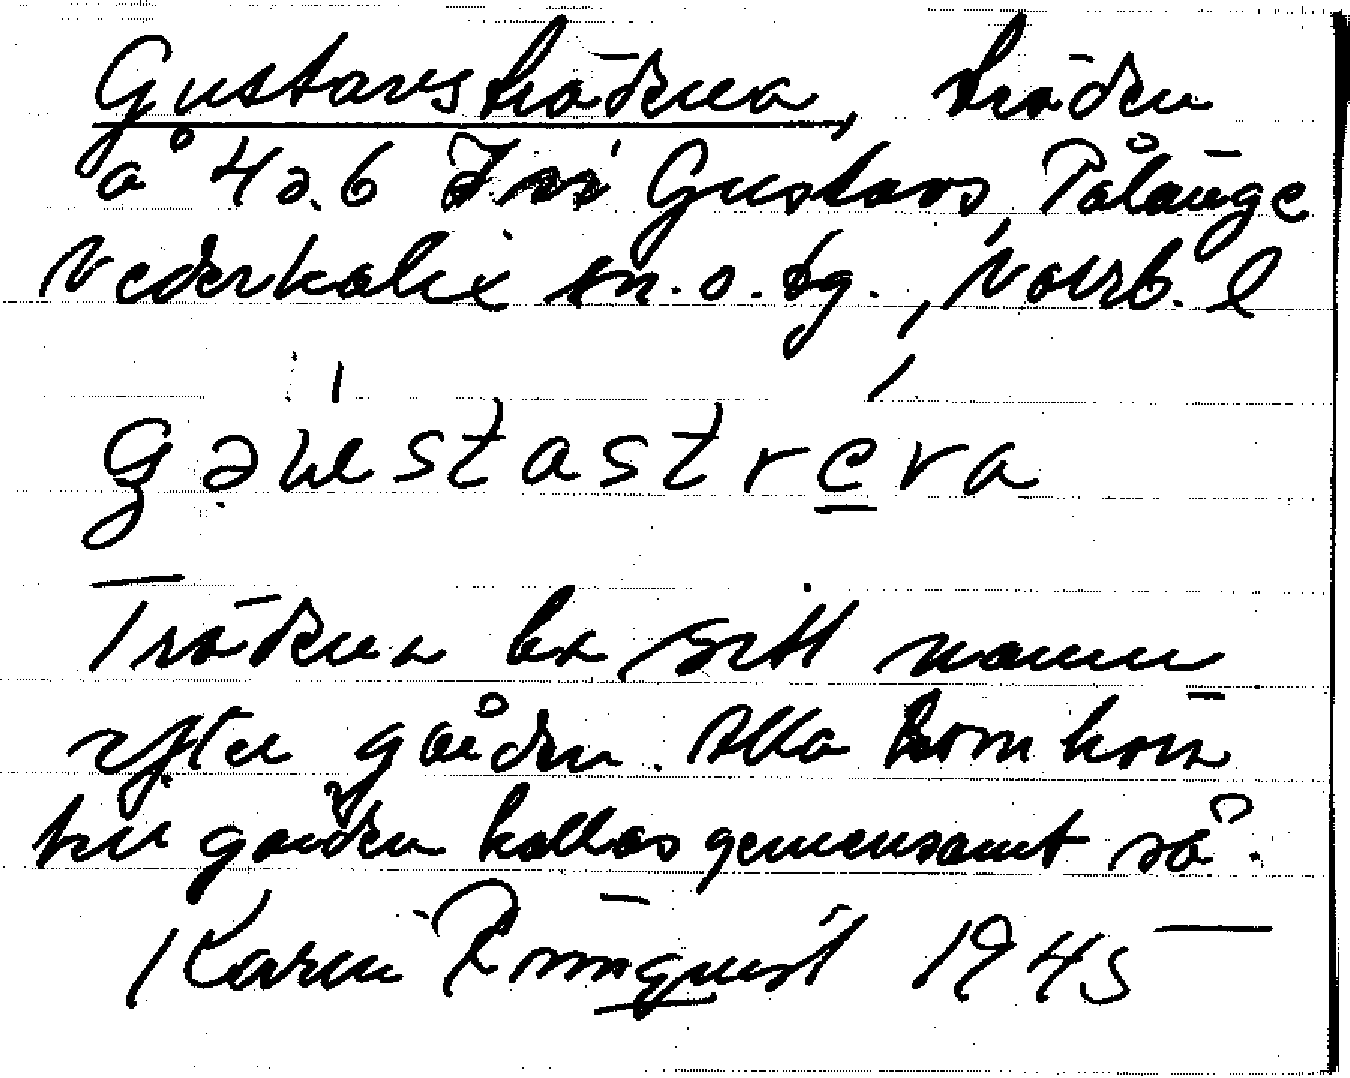 Gustavsträdena, träden
å 4a.6 Gustavs, Pålänge
Nederkalix sn. o. tg., Norrb. l
gəʉstastrera
Trädena ha sitt namn
efter gården. Alla som hör
till gården kallas gemensamt så.
Karin Rönnquist 1945